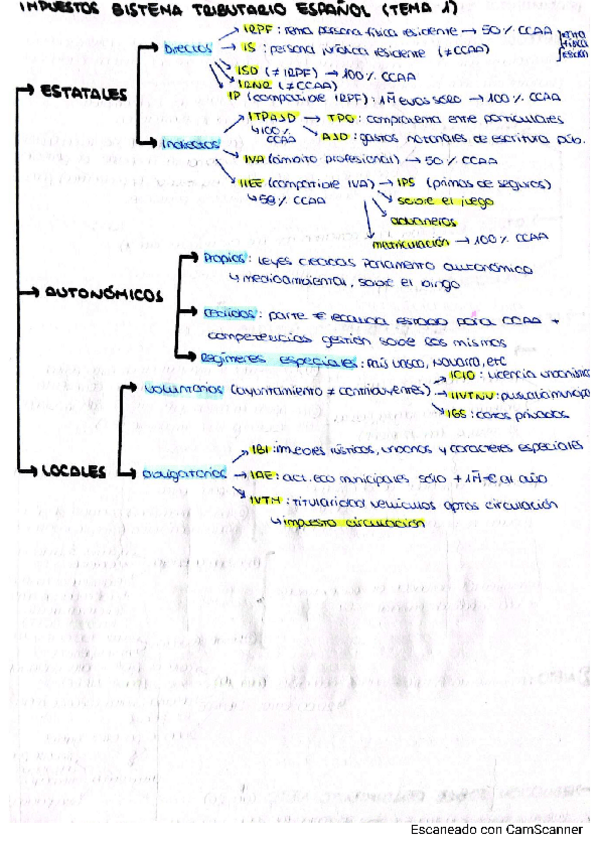 IMPUESTOS SISTEMA TRIBUTARIO ESPAÑOL (TEMA 1)
IRPF: renta persona física residente → 50% CCAA
Directos → IS: persona jurídica residente (≠CCAA)
ISD (≠IRPF) → 100% CCAA
IRNR (≠CCAA)
→ ESTATALES
IP (compatible IRPF): 1M euros sólo → 100% CCAA
ITPAJD → TPO: compraventa entre particulares
↳100% CCAA
AJD: gastos notariales de escritura púb.
Indirectos
IVA (ámbito profesional) → 50% CCAA
IIEE (compatible IVA) → IPS (primas de seguros)
↳58% CCAA
sobre el juego
aduaneros
matriculación → 100% CCAA
Propios: leyes creadas Parlamento autonómico
↳ medioambiental, sobre el bingo
→ AUTONÓMICOS
Cedidos: parte € recauda estado para CCAA +
competencias gestión sobre las mismas
Regímenes especiales: País Vasco, Navarra, etc
ICIO: licencia urbanism
Voluntarios (ayuntamiento ≠ contribuyentes) → IIVTNU: plusvalía municip
IGS: cotos privados
→ LOCALES
IBI: inmuebles rústicos, urbanos y caracteres especiales
Obligatorios → IAE: act. eco municipales sólo +1M € al año
IVTM: titularidad vehículos aptos circulación
↳ impuesto circulación
Escaneado con CamScanner